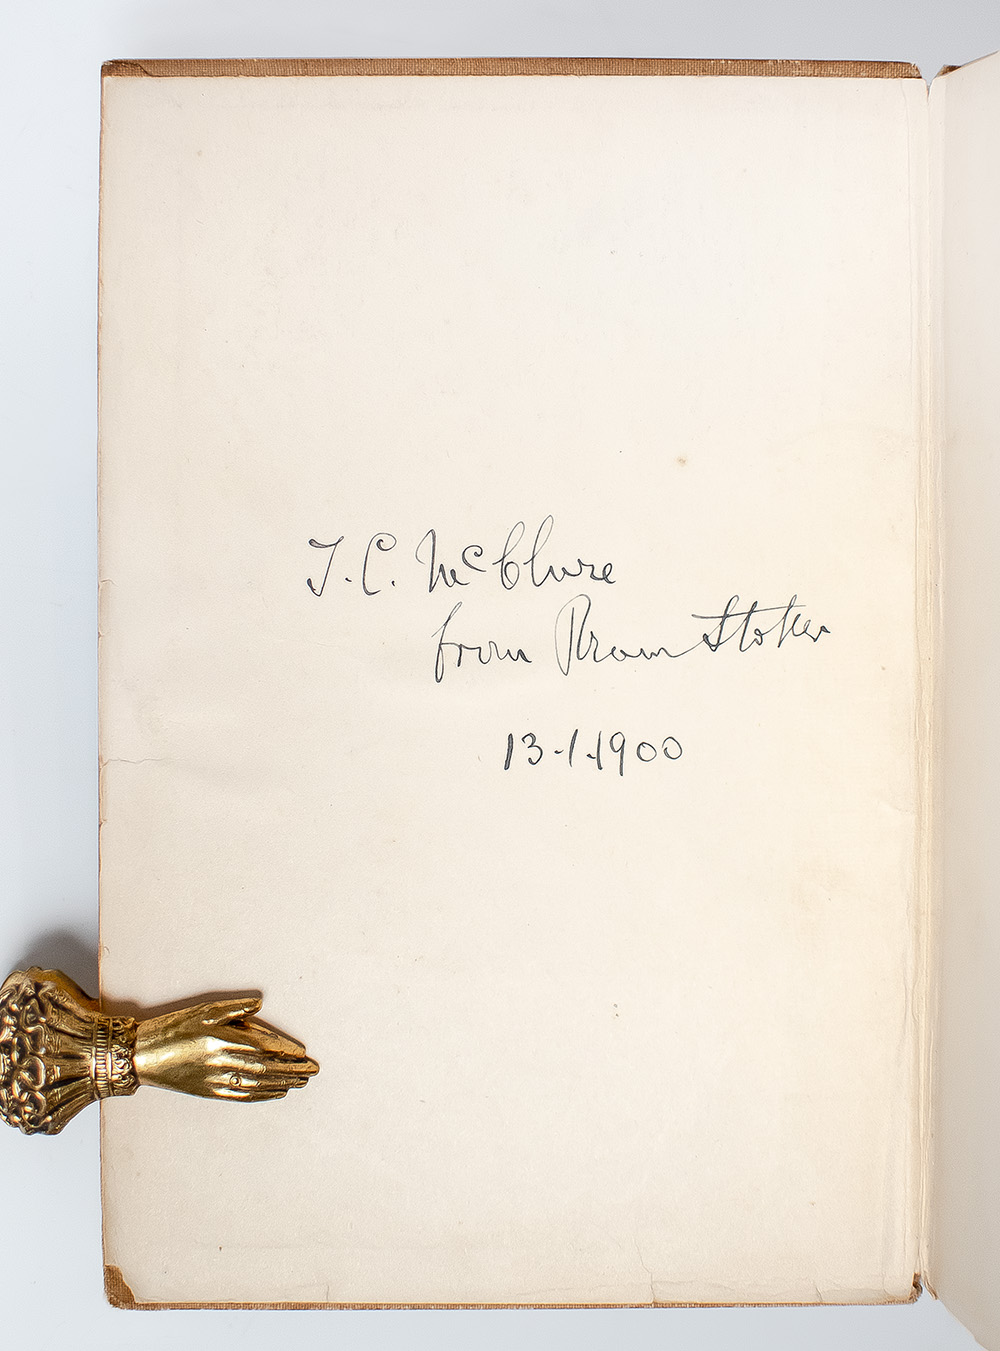 T. C. McClure
from Bram Stoker
13-1-1900